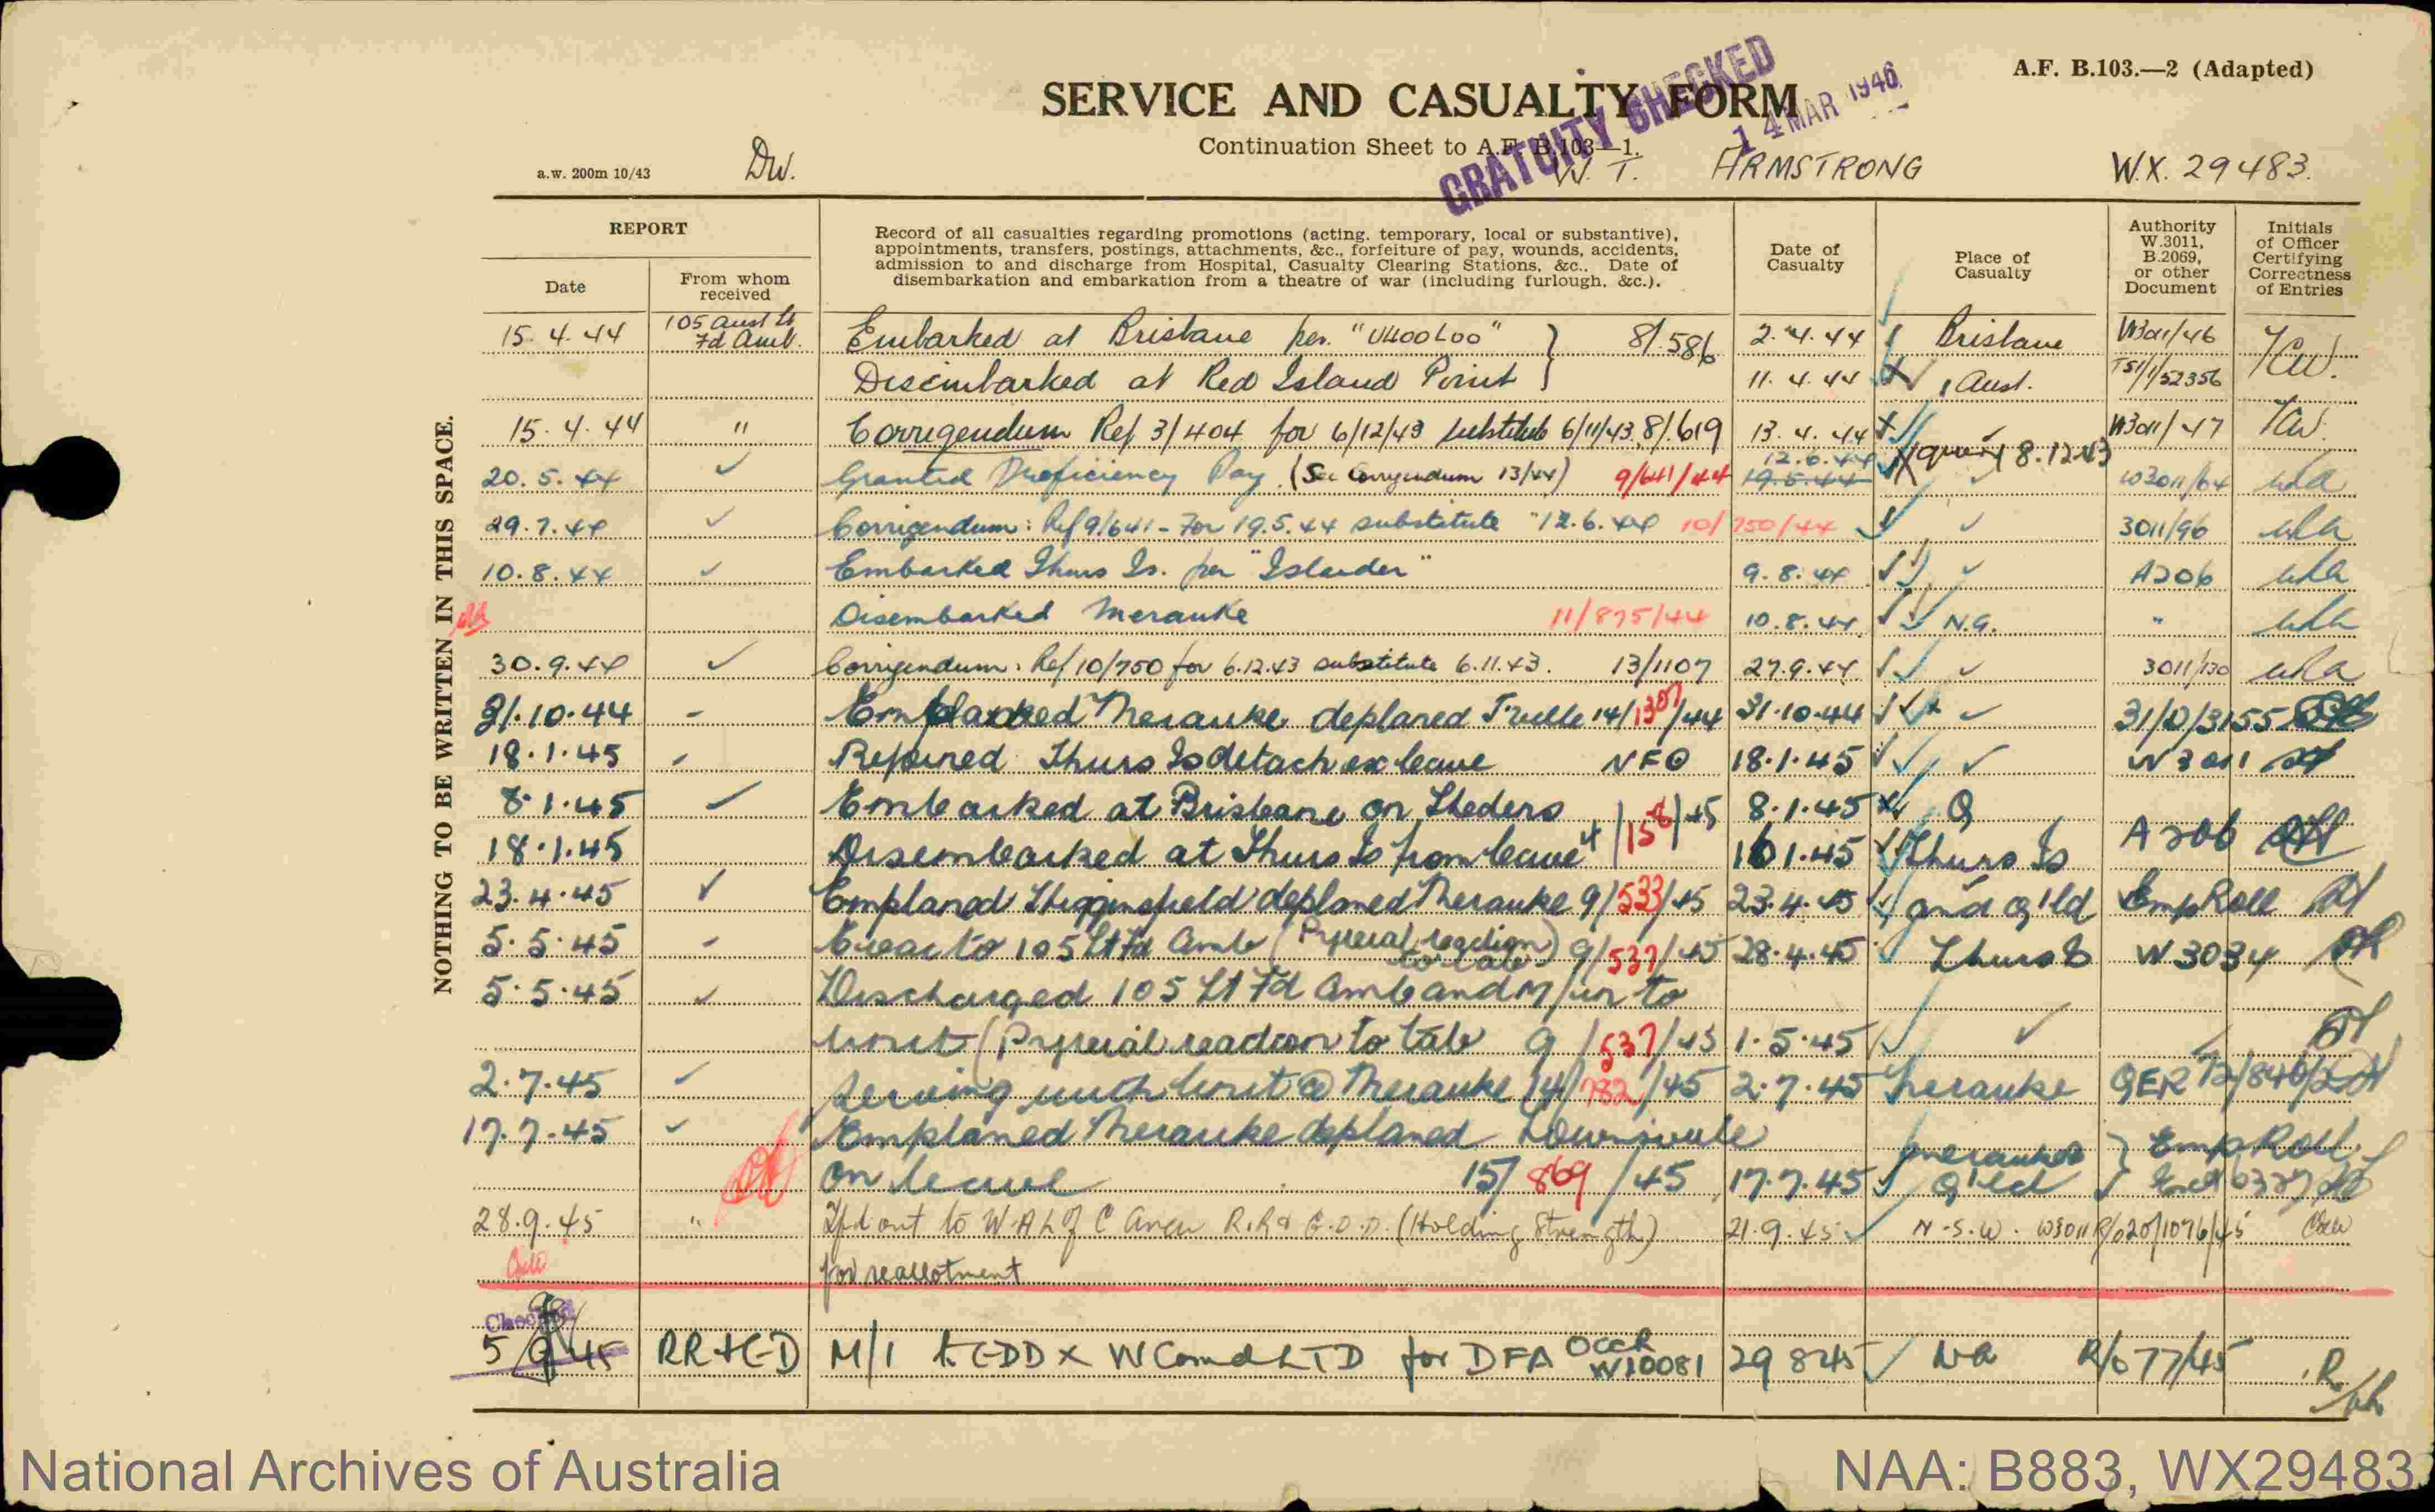 A.F. B.103.—2 (Adapted)
SERVICE AND CASUALTY FORM
GRATUITY CHECKED
14 MAR 1946
Continuation Sheet to A.F. B.103—1.
a.w. 200m 10/43 DW. W. T. ARMSTRONG W.X. 29483.
REPORT
Date
From whom received
Record of all casualties regarding promotions (acting, temporary, local or substantive),
appointments, transfers, postings, attachments, &c., forfeiture of pay, wounds, accidents,
admission to and discharge from Hospital, Casualty Clearing Stations, &c.. Date of
disembarkation and embarkation from a theatre of war (including furlough, &c.).
Date of Casualty
Place of Casualty
Authority W.3011, B.2069, or other Document
Initials of Officer Certifying Correctness of Entries
NOTHING TO BE WRITTEN IN THIS SPACE.
15.4.44 105 Aust Lt Fd Amb. Embarked at Brisbane per. "ULOOLOO" 8/.586 2.4.44 Brisbane W3011/46
Disembarked at Red Island Point 11.4.44 Aust. T51/1/52356
15.4.44 " Corrigendum Ref 3/404 for 6/12/43 substitute 6/11/43. 8/.619 13.4.44 W3011/47
20.5.44 Granted Proficiency Pay (See Corrigendum 13/44) 9/641/44 12.6.44 19.5.44 8.12.43 W3011/64
29.7.44 Corrigendum: Ref 9/641 - For 19.5.44 substitute "12.6.44 10/750/44 3011/96
10.8.44 Embarked Thurs Is. per "Islander" 9.8.44 A206
Disembarked Merauke 11/875/44 10.8.44 N.G. "
30.9.44 Corrigendum: Ref 10/750 for 6.12.43 substitute 6.11.43. 13/1107 27.9.44 3011/130
31.10.44 Emplaned Merauke deplaned T'ville 14/1307/44 31.10.44 31/D/3155
18.1.45 Rejoined Thurs Is detach ex leave NFO 18.1.45 W3011
8.1.45 Embarked at Brisbane on 8.1.45 Q
18.1.45 Disembarked at Thurs Is from leave 4/158/45 16.1.45 Thurs Is A206
23.4.45 Emplaned Higginsfield deplaned Merauke 9/533/45 23.4.45 Q'ld Emp Roll
5.5.45 Evac to 105 Lt Fd Amb (Pyrexial reaction to tab) 9/537/45 28.4.45 Thurs Is W3034
5.5.45 Discharged 105 Lt Fd Amb and M/in to
Unit (Pyrexial reaction to tab 9/537/45 1.5.45
2.7.45 Serving with Unit @ Merauke 14/782/45 2.7.45 Merauke
17.7.45 Emplaned Merauke deplaned Townsville
on leave 15/869/45 17.7.45 Merauke Q'ld Emp Roll
28.9.45 " Tfd out to W.A. L of C Area R.R & G.D.D. (Holding Strength) 21.9.45 N.S.W. W3011 R/020/1076/45
for reallotment
Checked
5/9/45 RR+GD M/I W Comd LTD for DFA OCCR W10081 29 8 45 R/077/45
National Archives of Australia
NAA: B883, WX29483